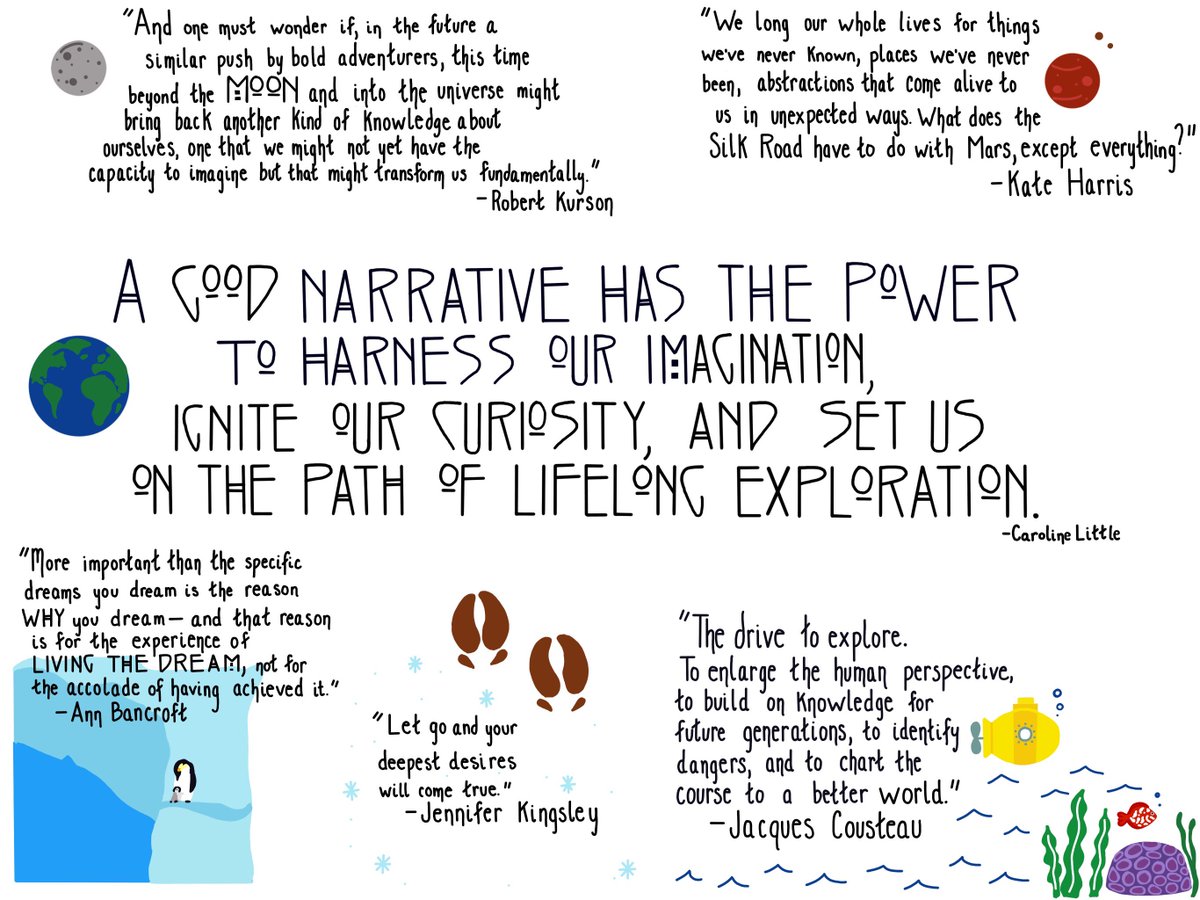 "And one must wonder if, in the future a
similar push by bold adventurers, this time
beyond the MOON and into the universe might
bring back another kind of knowledge about
ourselves, one that we might not yet have the
capacity to imagine but that might transform us fundamentally."
-Robert Kurson
"We long our whole lives for things
we've never known, places we've never
been, abstractions that come alive to
us in unexpected ways. What does the
Silk Road have to do with Mars, except everything?"
-Kate Harris
A GOOD NARRATIVE HAS THE POWER
TO HARNESS OUR IMAGINATION,
IGNITE OUR CURIOSITY, AND SET US
ON THE PATH OF LIFELONG EXPLORATION.
-Caroline Little
"More important than the specific
dreams you dream is the reason
WHY you dream — and that reason
is for the experience of
LIVING THE DREAM, not for
the accolade of having achieved it."
-Ann Bancroft
"Let go and your
deepest desires
will come true."
-Jennifer Kingsley
"The drive to explore.
To enlarge the human perspective,
to build on knowledge for
future generations, to identify
dangers, and to chart the
course to a better world."
-Jacques Cousteau